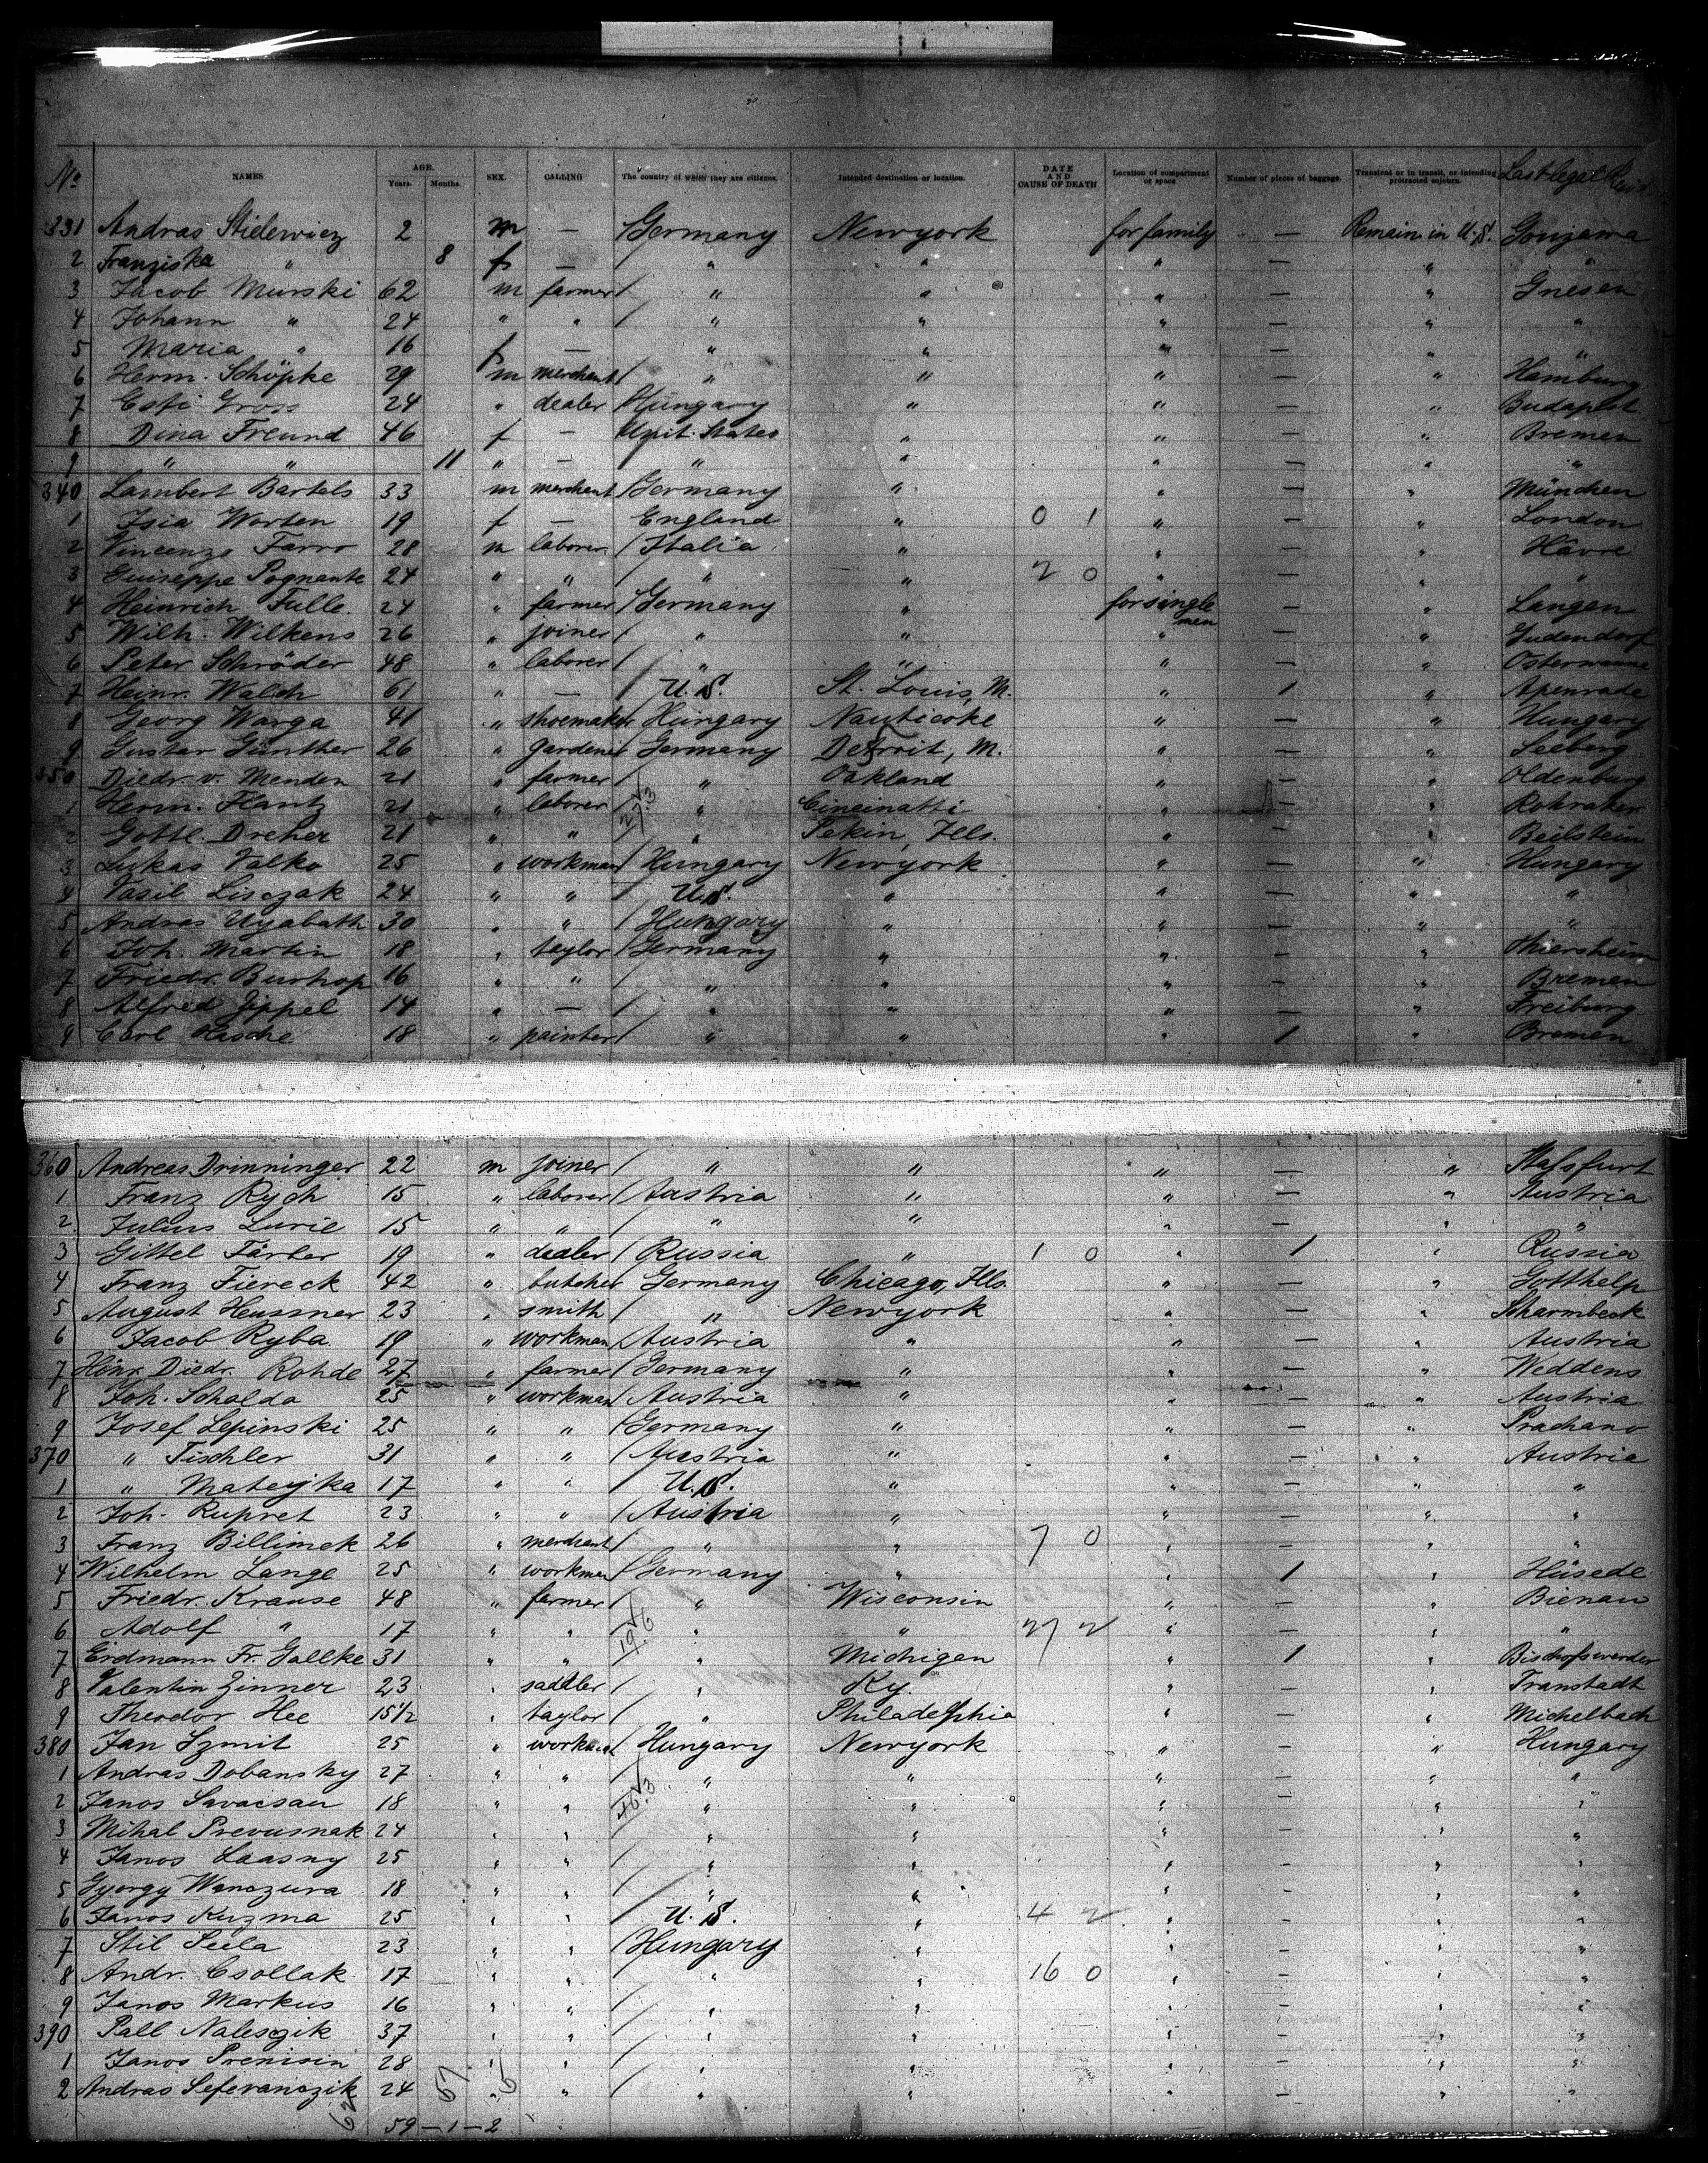 No NAMES AGE. Years. Months. SEX. CALLING The country of which they are citizens. Intended destination or location. DATE AND CAUSE OF DEATH Location of compartment or space Number of pieces of baggage. Transient or in transit, or intending protracted sojourn. Last legal
331 Andras Stielewicz 2 m — Germany Newyork for family — Remain in U.S. Gonzawa
2 Franziska " 8 f — " " " — " "
3 Jacob Murski 62 m farmer " " " — " Gnesen
4 Johann " 24 " " " " " — " "
5 Maria " 16 f — " " " — " "
6 Herm. Schöpke 29 m merchant " " " — " Hamburg
7 Esti Gross 24 " dealer Hungary " " — " Budapest
8 Dina Freund 46 f — Unit. States " " — " Bremen
9 " " 11 " — " " " — " "
340 Lambert Bartels 33 m merchant Germany " " — " München
1 Isia Worten 19 f — England " 0 1 " — " London
2 Vincenzo Farro 28 m laborer Italia " " — " Havre
3 Guiseppe Pognante 24 " " " " 2 0 " — " "
4 Heinrich Fulle 24 " farmer Germany " for single men — " Langen
5 Wilh. Wilkens 26 " joiner " " " — " Gudendorf
6 Peter Schröder 48 " laborer " " " — " Osterwanna
7 Heinr. Walch 61 " — U.S. St. Louis, M. " 1 " Apenrade
8 Georg Warga 41 " shoemaker Hungary Nauticoke " — " Hungary
9 Gustav Günther 26 " gardener Germany Detroit, M. " — " Seeberg
350 Diedr. v. Menden 21 " farmer " Oakland " — " Oldenburg
1 Herm. Flantz 21 " laborer " Cincinatti " — " Rohraker
2 Gottl. Dreher 21 " " " Pekin, Ills. " — " Beilstein
3 Lukas Valko 25 " workman Hungary Newyork " — " Hungary
4 Vasil Lisczak 24 " " U.S. " " — " "
5 Andras Ugabath 30 " " Hungary " " — " "
6 Joh. Martin 18 " taylor Germany " " — " Thiersheim
7 Friedr. Burhop 16 " " " " " — " Bremen
8 Alfred Zippel 14 " — " " " — " Freiburg
9 Carl Hasche 18 " painter " " " 1 " Bremen
360 Andreas Drinninger 22 m joiner " " " — " Stassfurt
1 Franz Rych 15 " laborer Austria " " — " Austria
2 Julius Lurie 15 " " " " " — " "
3 Gittel Färber 19 " dealer Russia " 1 0 " 1 " Russia
4 Franz Fiereck 42 " butcher Germany Chicago, Ills. " — " Gotthelp
5 August Heusmer 23 " smith " Newyork " — " Scharmbeck
6 Jacob Ryba 19 " workman Austria " " — " Austria
7 Hinr. Diedr. Rohde 27 " farmer Germany " " — " Weddens
8 Joh. Schalda 25 " workman Austria " " — " Austria
9 Josef Lepinski 25 " " Germany " " — " Prachano
370 " Tischler 31 " " Austria " " — " Austria
1 " Matejka 17 " " U.S. " " — " "
2 Joh. Rupret 23 " " Austria " " — " "
3 Franz Billimek 26 " merchant " " 7 0 " — " "
4 Wilhelm Lange 25 " workman Germany " " 1 " Hüsede
5 Friedr. Krause 48 " farmer " Wisconsin " — " Bienau
6 Adolf " 17 " " " " 27 2 " — " "
7 Erdmann Fr. Gallke 31 " " " Michigan " 1 " Bischofswerder
8 Valentin Zinner 23 " saddler " Ky. " — " Franstadt
9 Theodor Hee 15 1/2 " taylor " Philadelphia " — " Michelbach
380 Jan Szmit 25 " workman Hungary Newyork " — " Hungary
1 Andras Dobansky 27 " " " " " — " "
2 Janos Savacsan 18 " " " " " — " "
3 Mihal Prevusnak 24 " " " " " — " "
4 Janos Laasny 25 " " " " " — " "
5 Gyorgy Wanczura 18 " " " " " — " "
6 Janos Kuzma 25 " " U.S. " 4 2 " — " "
7 Stil Seela 23 " " Hungary " " — " "
8 Andr. Csollak 17 " " " " 16 0 " — " "
9 Janos Markus 16 " " " " " — " "
390 Pall Nalesczik 37 " " " " " — " "
1 Janos Prenisin 28 " " " " " — " "
2 Andras Sefevanczik 24 " " " " " — " "
59 — 1 — 2